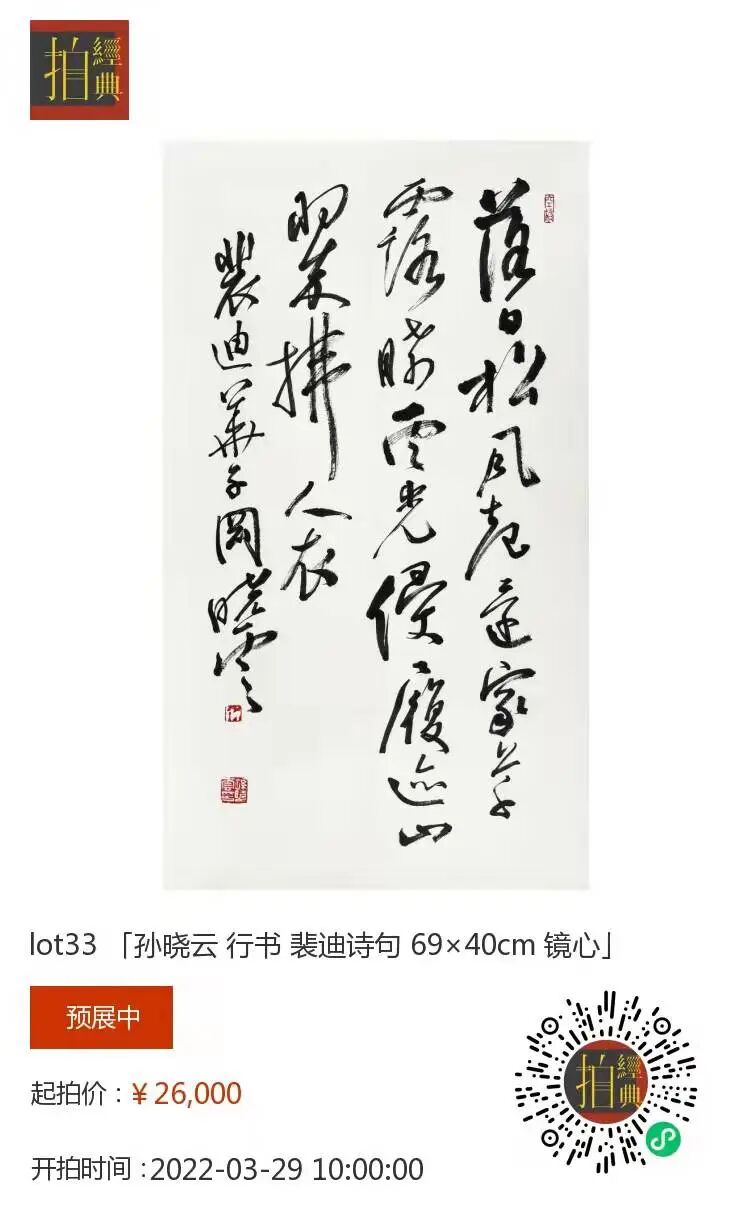 拍 經典
落日松風起還家草
露晞雲光侵履迹山
翠拂人衣
裴迪華子岡曉雲
lot33 「孙晓云 行书 裴迪诗句 69×40cm 镜心」
预展中
起拍价：¥ 26,000
开拍时间：2022-03-29 10:00:00
拍 經典